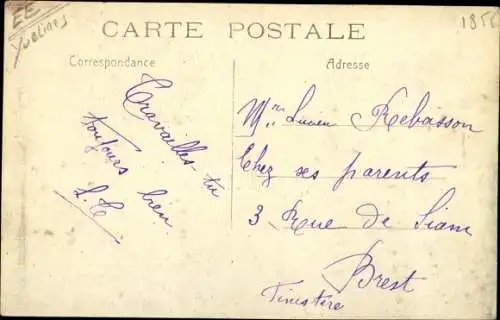 EE
Yvelines
185
CARTE POSTALE
Correspondance
Adresse
Travailles-tu
toujours bien
L.C
Mr. Lucien Rebasson
Chez ses parents
3 Rue de Siam
Brest
Finistère